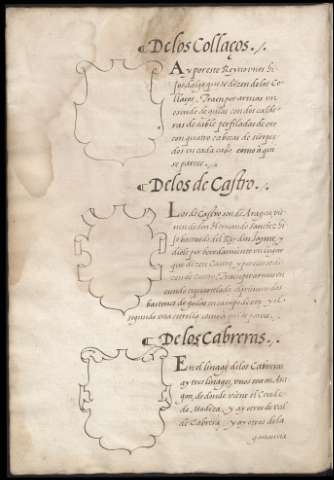 ¶ De los Collaços ./.
Ay por este Reyno unos hi
josdalgo que se dizen de los Co
llaços. Traen por armas un
escudo de gulas con dos calde
ras de sable perfiladas de oro
con quatro cabeças de sierpe
dos en cada cabo como aqui
se parece ./.
¶ De los de Castro ./.
Los de Castro son de Aragon, vie
nen de don Hernando Sanchez hi
jo bastardo del Rey don Jayme, y
diole por heredamiento un lugar
que dizen Castro, y por eso se di
zen de Castro. Traen por armas un
escudo
bastones de gulas en campo de oro, y el
segundo una estrella como aqui se parece ./.
¶ De los Cabreras ./.
En el linage de los Cabreras
ay tres linages, unos son
guo, de donde viene el Conde
de Modica, y ay otros de Val
de Cabrera, y ay otros de la